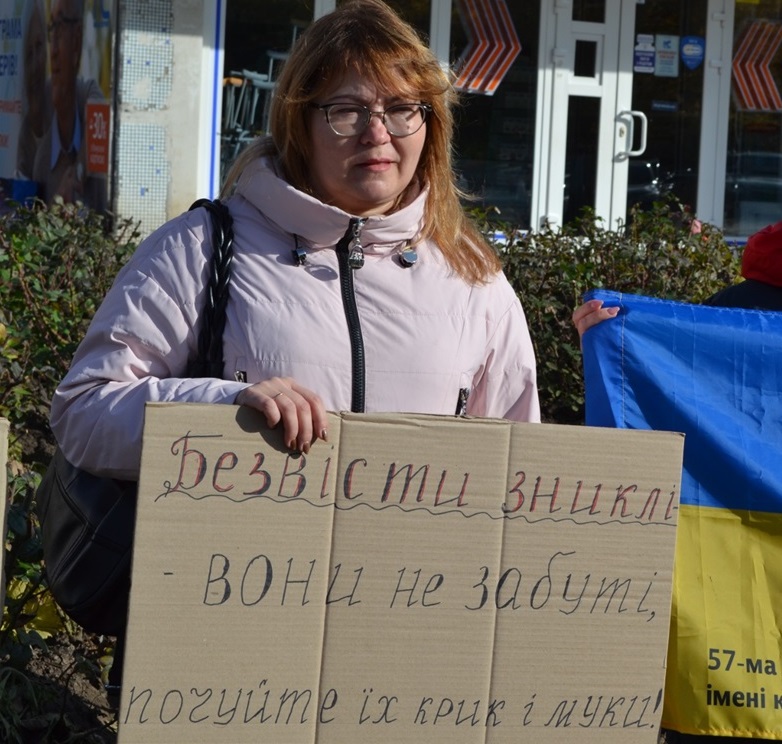 Безвісти зниклі
- ВОНИ не забуті,
почуйте їх крик і муки!
57-ма
імені к
-30%